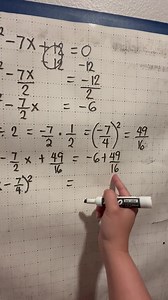 ² - 7x + 12 = 0
- 12 -12
² - 7x/2 = -12/2
² - 7/2 x = -6
= 2 = -7/2 · 1/2 = (-7/4)² = 49/16
- 7/2 x + 49/16 = -6 + 49/16
x - 7/4)² =